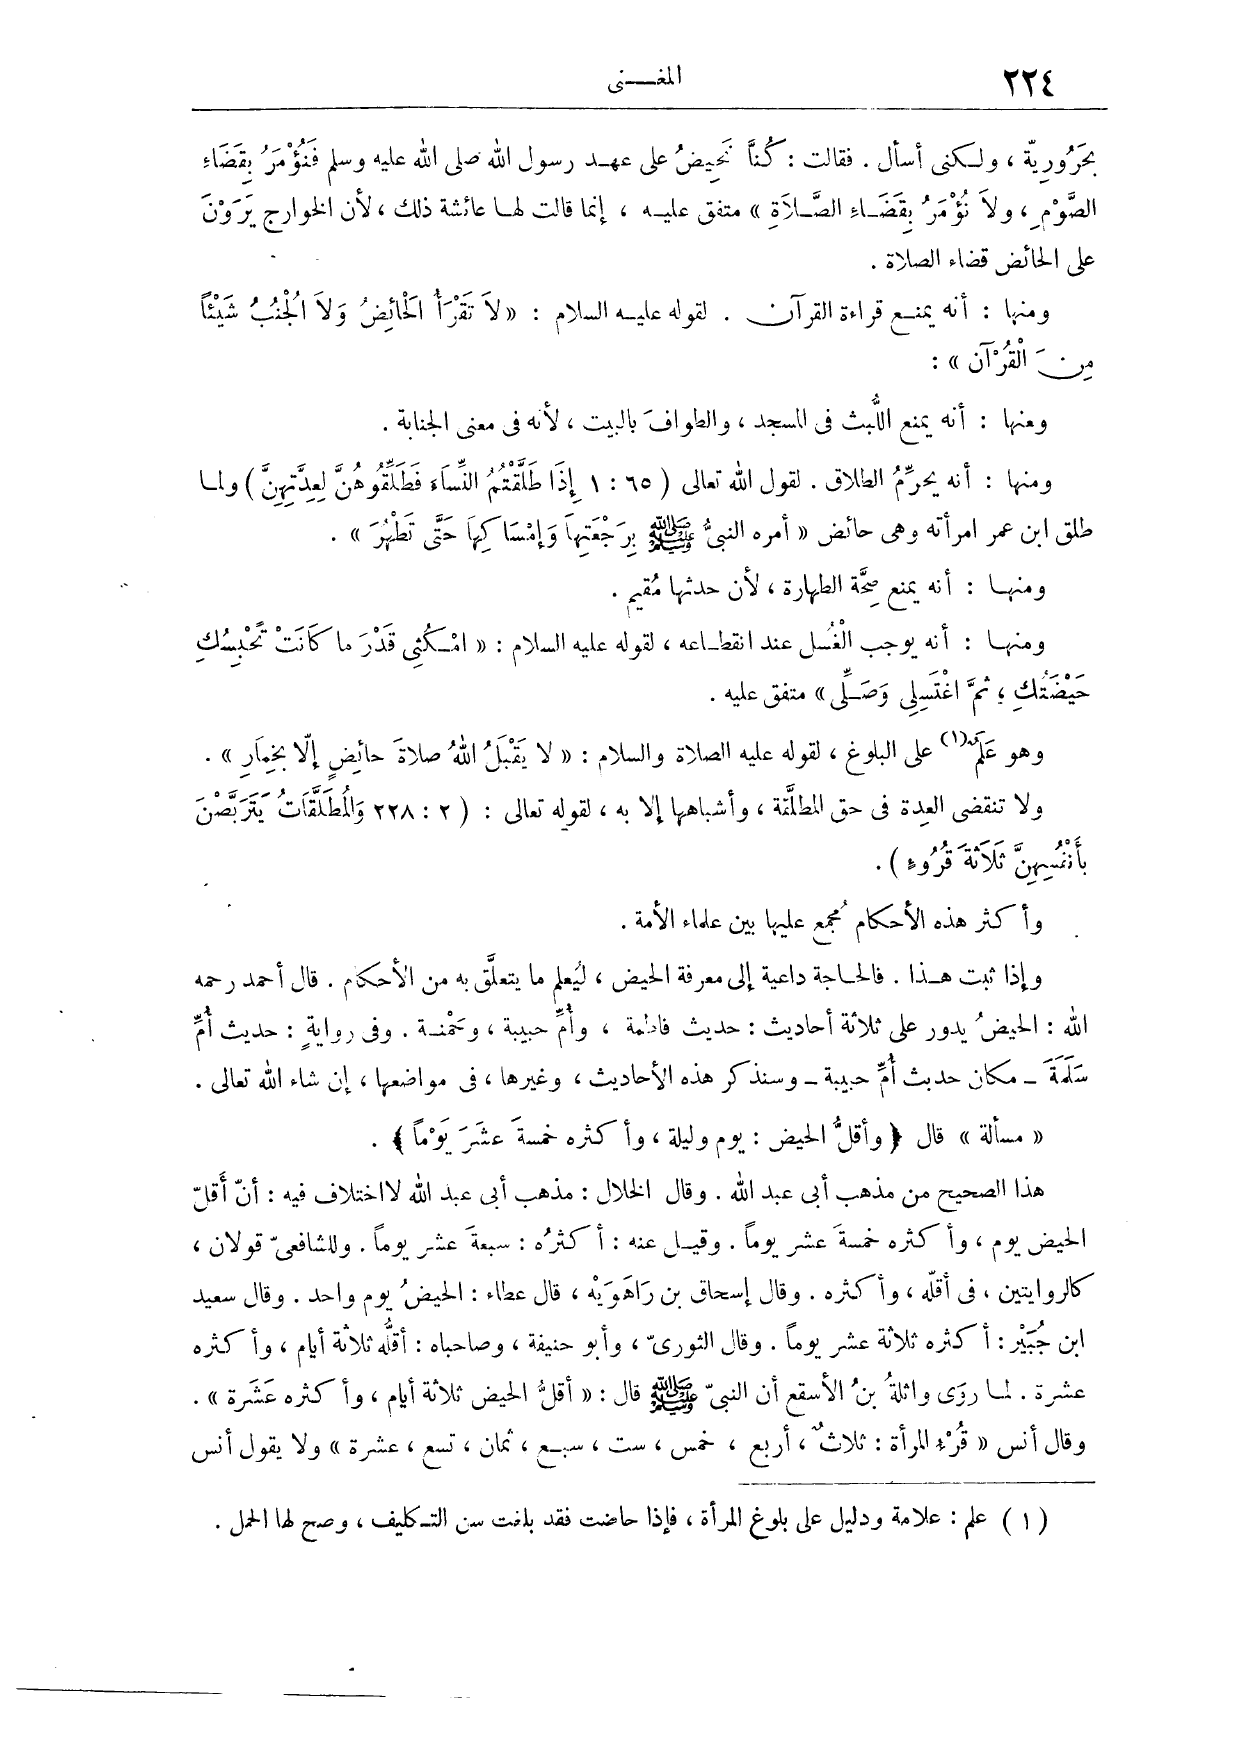 ٢٢٤
المغـــنى
بحَرُورِيّة ، ولـكنى أسأل . فقالت : كُنَّا نَحِيضُ على عهـد رسول الله صلى الله عليه وسلم فَنُؤْمَرُ بِقَضَاءِ
الصَّوْمِ ، ولاَ نُؤْمَرُ بِقَضَـاءِ الصَّـلاَةِ » متفق عليـه ، إنما قالت لهـا عائشة ذلك ، لأن الخوارج يَرَوْنَ
على الحائض قضاء الصلاة .
ومنها : أنه يمنـع قراءة القرآن . لقوله عليـه السلام : « لاَ تَقْرَأُ الْحَائِضُ وَلاَ الْجُنُبُ شَيْئًا
مِنَ الْقُرْآن » :
ومنها : أنه يمنع اللُّبث فى المسجد ، والطوافَ بالبيت ، لأنه فى معنى الجنابة .
ومنها : أنه يحرِّمُ الطلاق . لقول الله تعالى ( ٦٥ : ١ إِذَا طَلَّقْتُمُ النِّسَاءَ فَطَلِّقُوهُنَّ لِعِدَّتِهِنَّ ) ولمـا
طلق ابن عمر امرأته وهى حائض « أمره النبىُّ ﷺ بِرَجْعَتِهاَ وَإِمْسَاكِهاَ حَتَّى تَطْهُرَ » .
ومنهـا : أنه يمنع صِحَّة الطهارة ، لأن حدثها مُقيم .
ومنهـا : أنه يوجب الْغُسل عند انقطـاعه ، لقوله عليه السلام : « امْـكُثِى قَدْرَ ما كَانَتْ تَحْبِسُكِ
حَيْضَتُكِ ؛ ثمَّ اغْتَسِلِى وَصَـلِّى » متفق عليه .
وهو عَلَم(١) على البلوغ ، لقوله عليه الصلاة والسلام : « لا يَقْبَلُ اللهُ صلاةَ حائِضٍ إلّا بخِمَارِ » .
ولا تنقضى العدة فى حق المطلَّقة ، وأشباهها إلا به ، لقوله تعالى : ( ٢ : ٢٢٨ وَالْمُطَلَّقَاتُ يَتَرَبَّصْنَ
بأَنْفُسِهِنَّ ثَلَاثَةَ قُرُوءٍ ) .
وأكثر هذه الأحكام مُجمع عليها بين علماء الأمة .
وإذا ثبت هـذا . فالحـاجة داعية إلى معرفة الحيض ، ليُعلم ما يتعلَّق به من الأحكام . قال أحمد رحمه
الله : الحيضُ يدور على ثلاثة أحاديث : حديث فاطمة ، وأُمِّ حبيبة ، وحَمْنـة . وفى روايةٍ : حديث أُمِّ
سَلَمَةَ ـ مكان حديث أُمِّ حبيبة ـ وسنذكر هذه الأحاديث ، وغيرها ، فى مواضعها ، إن شاء الله تعالى .
« مسألة » قال ﴿ وأقلُّ الحيض : يوم وليلة ، وأكثره خمسةَ عشَرَ يَوْماً ﴾ .
هذا الصحيح من مذهب أبى عبد الله . وقال الخلال : مذهب أبى عبد الله لااختلاف فيه : أنّ أَقلّ
الحيض يوم ، وأكثره خمسةَ عشر يوماً . وقيـل عنه : أكثرُه : سبعةَ عشر يوماً . وللشافعىّ قولان ،
كالروايتين ، فى أقلّه ، وأكثره . وقال إسحاق بن رَاهَوَيْه ، قال عطاء : الحيضُ يوم واحد . وقال سعيد
ابن جُبَيْر : أكثره ثلاثة عشر يوماً . وقال الثورىّ ، وأبو حنيفة ، وصاحباه : أقلُّه ثلاثة أيام ، وأكثره
عشرة . لمـا روَى واثلةُ بنُ الأسقع أن النبىّ ﷺ قال : « أقلُّ الحيض ثلاثة أيام ، وأكثره عَشَرة » .
وقال أنس « قُرْء المرأة : ثلاثٌ ، أربع ، خمس ، ست ، سبـع ، ثمان ، تسع ، عشرة » ولا يقول أنس
( ١ ) علم : علامة ودليل على بلوغ المرأة ، فإذا حاضت فقد بلغت سن التـكليف ، وصح لها الحمل .